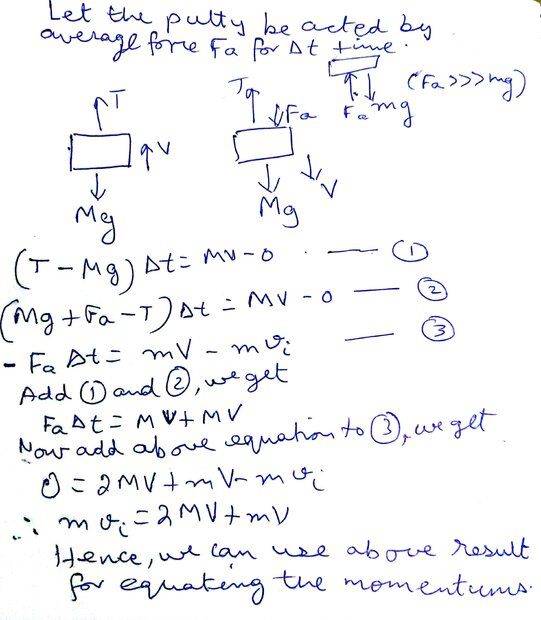 Let the putty be acted by
average force Fa for Δt time.
T
V
Mg
Ta
Fa
V
Mg
Fa mg
(Fa>>>mg)
(T - Mg) Δt = MV - 0 — ①
(Mg + Fa - T) Δt = MV - 0 — ②
- Fa Δt = mV - mvi — ③
Add ① and ②, we get
Fa Δt = MV + MV
Now add above equation to ③, we get
0 = 2MV + mV - mvi
∴ mvi = 2MV + mV
Hence, we can use above result
for equating the momentums.